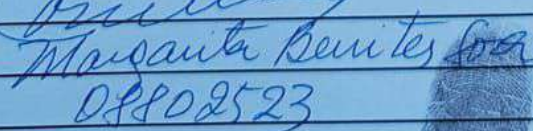 Margarita Benites
08802523